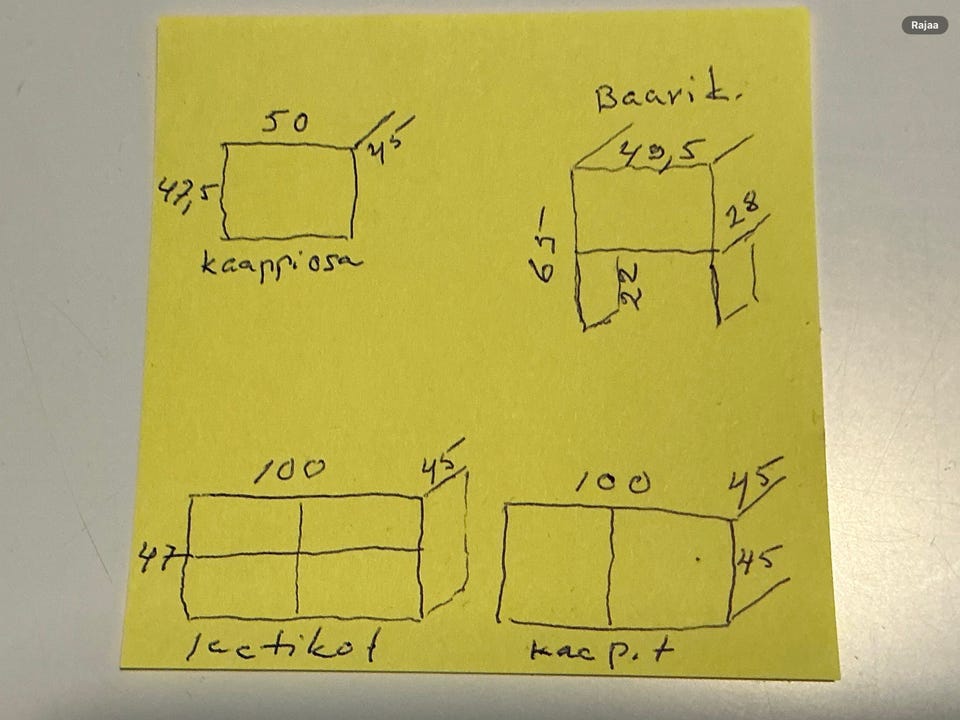 Rajaa
50
45
47,5
kaappiosa
Baarik.
49,5
28
65
22
100
45
47
laatikot
100
45
45
kaapit